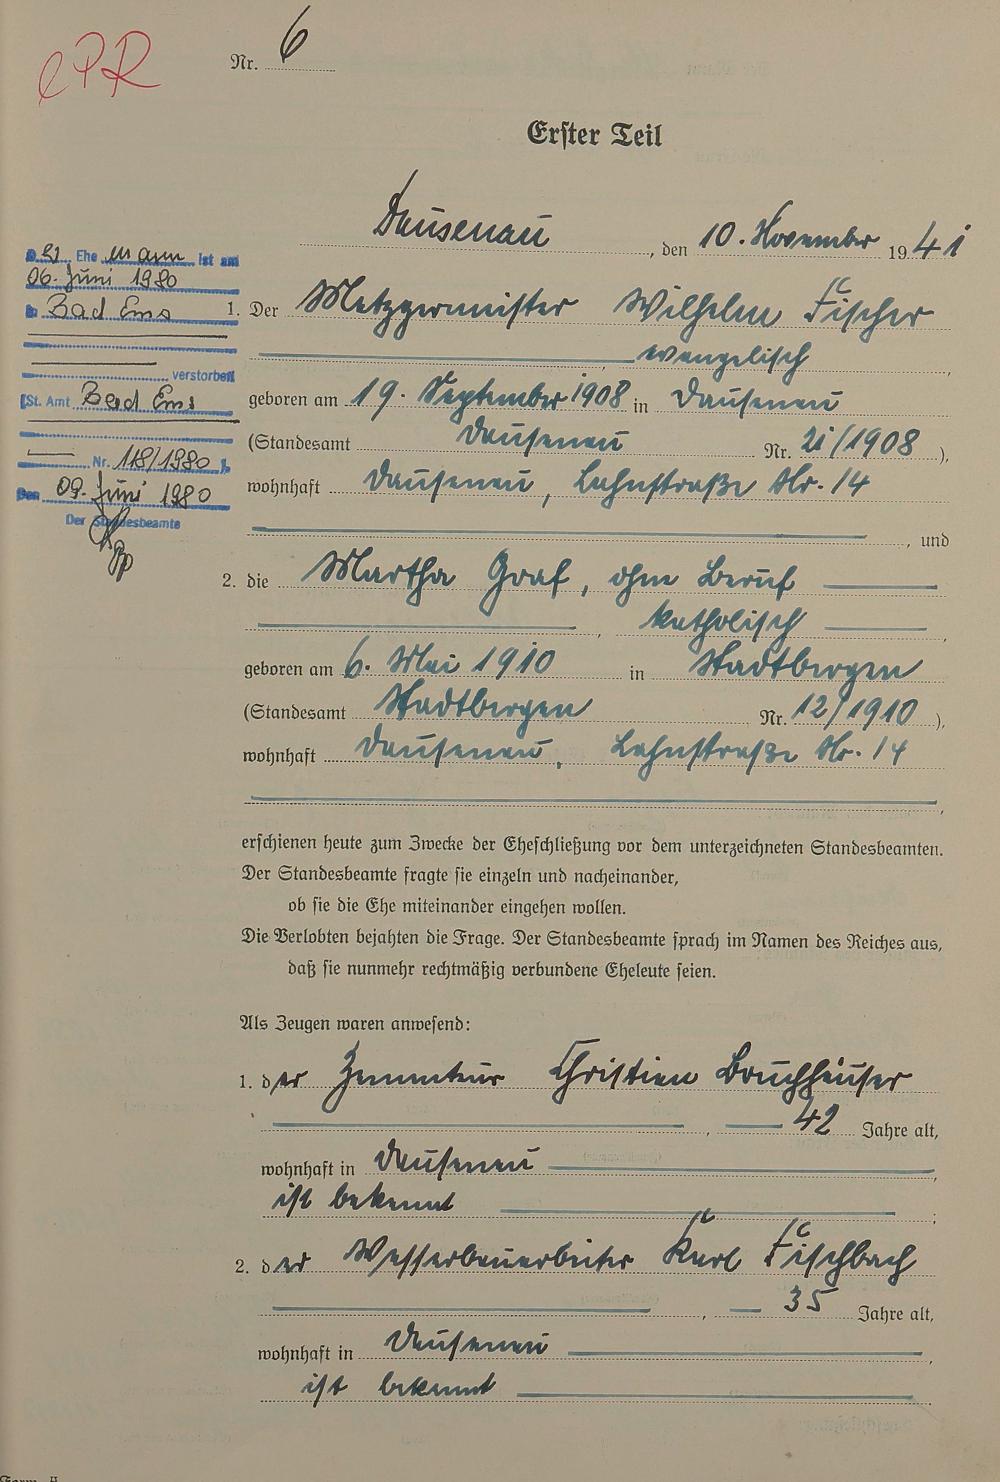 ePR
Nr. 6
Erster Teil
Dausenau, den 10. November 1941
D er Ehe mann ist am
06. Juni 1980
in Bad Ems
verstorben
(St. Amt Bad Ems
Nr. 118/1980 ).
Den 09. Juni 1980
Der Standesbeamte
1. Der Metzgermeister Wilhelm Fischer
, evangelisch,
geboren am 19. September 1908 in Dausenau
(Standesamt Dausenau Nr. 21/1908),
wohnhaft Dausenau, Lahnstraße Nr. 14
, und
2. die Martha Graf, ohne Beruf
, katholisch,
geboren am 6. Mai 1910 in Stadtbergen
(Standesamt Stadtbergen Nr. 12/1910),
wohnhaft Dausenau, Lahnstraße Nr. 14
,
erschienen heute zum Zwecke der Eheschließung vor dem unterzeichneten Standesbeamten.
Der Standesbeamte fragte sie einzeln und nacheinander,
ob sie die Ehe miteinander eingehen wollen.
Die Verlobten bejahten die Frage. Der Standesbeamte sprach im Namen des Reiches aus,
daß sie nunmehr rechtmäßig verbundene Eheleute seien.
Als Zeugen waren anwesend:
1. der Christian Bruchhäuser
, 42 Jahre alt,
wohnhaft in Dausenau,
ist bekannt ;
2. der Wasserbauarbeiter Karl Fischbach
, 35 Jahre alt,
wohnhaft in Dausenau,
ist bekannt.